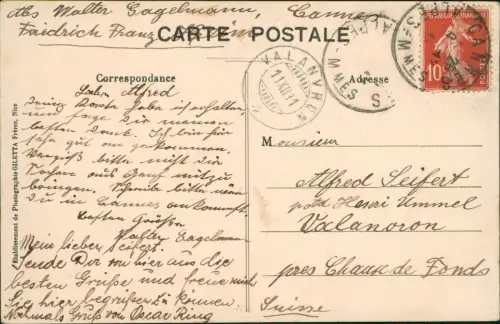 Abs Walter Eagelmann, Cannes
Friedrich Franz
CARTE POSTALE
Correspondance
Adresse
CANNES
ALPES-MMES
VALANVRON
11.XII.11
10
Lieber Alfred
Deine Karte habe ich erhalten,
und sage Dir meinen
besten Dank. Ich bin hier
sehr gut angekommen.
Vergiß bitte nicht die
Sachen aus Genf mitzu
bringen. Schreibe bitte wann
Du in Cannes ankommst.
Besten Grüße
Walter Eagelmann
Mein lieber Seifert.
Sende Dir von hier aus die
besten Grüße und freue mich
Sie hier begrüßen zu können.
Nochmals Gruß von Oscar Ring
Monsieur
Alfred Seifert
Henri Ummel
Valanvron
pres Chaux de Fonds
Suisse
Etablissement de Photographie GILETTA Frères, Nice